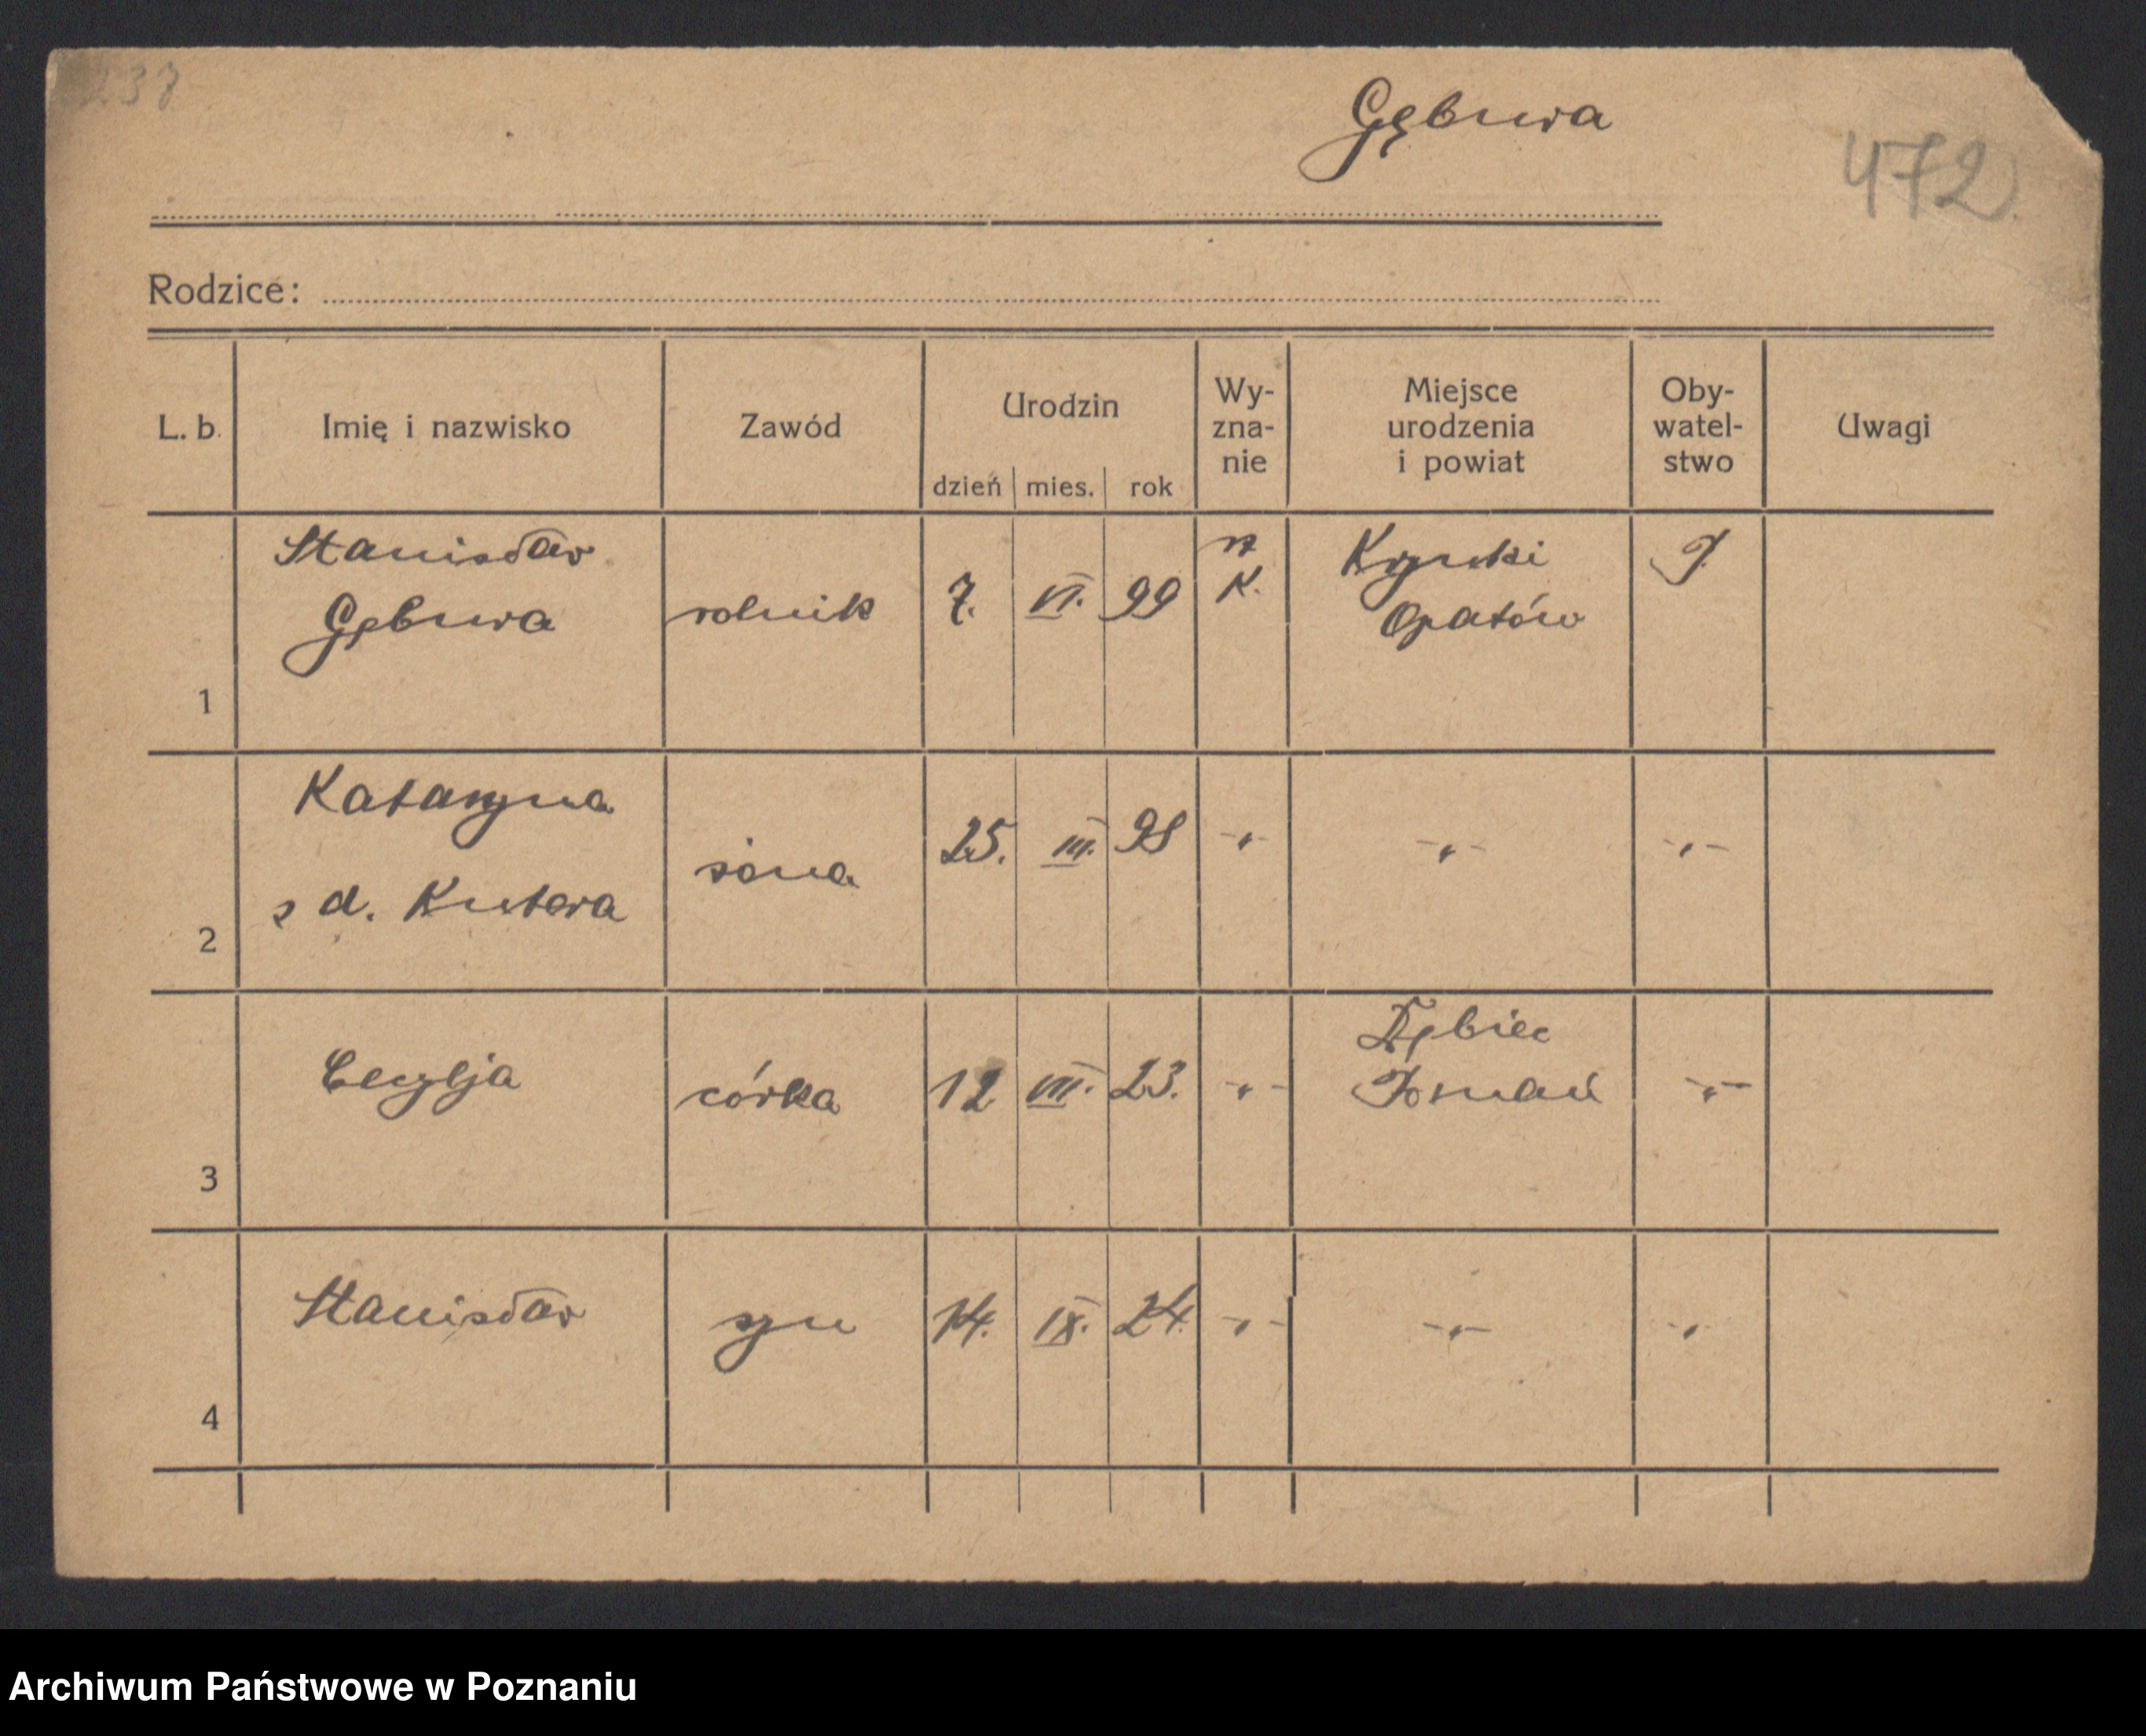 237
Gębura
472
Rodzice:
L. b. Imię i nazwisko Zawód Urodzin dzień mies. rok Wy-zna-nie Miejsce urodzenia i powiat Oby-watel-stwo Uwagi
1 Stanisław Gębura rolnik 7. VI. 99 rz K. Opatów P.
2 Katarzyna z d. Kutera żona 25. III. 98 -"- -"- -"-
3 Cecylja córka 12 VII. 23. -"- Dębiec Poznań -"-
4 Stanisław syn 14. IX. 24. -"- -"- -"-
Archiwum Państwowe w Poznaniu